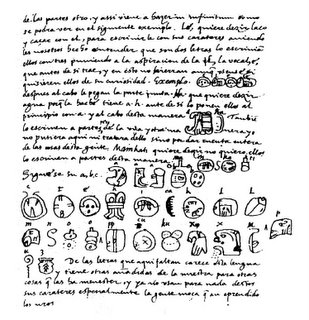 de las partes otro, y assi viene a hazer in infinitum como
se podra ver en el siguiente exemplo. Lé, quiere dezir laço
y caçar con el, para escrivirle con sus carateres aviendo
les nosotros hecho entender que son dos letras lo escrivian
ellos con tres puniendo a la aspiracion de la l la vocal e,
que antes de si trae, y en esto no hierran aunque
quisieren ellos de su curiosidad. Exemplo
despues al cabo le pegan la parte junta. Ha que quiere dezir
agua porq la hache tiene a. h. ante de si lo ponen ellos al
principio con a. y al cabo desta manera Tambie
lo escriven a partes de la una y otra ma nera yo
no pusiera aqui ni tratara dello sino por dar cuenta entera
de las cosas desta gente. Mainkati quiere dezir no quiero ellos
lo escriven a partes desta manera ma i n ka ti
Siguese su a, b, c.
c t e h i ca k l l
m n o o p pp cu ku x x u u
z De las letras que aqui faltan carece esta lengua
y tiene otras añadidas de la nuestra para otras
cosas q las ha menester, y ya no usan para nada destos
sus carateres especialmente la gente moça q an aprendido
los nros